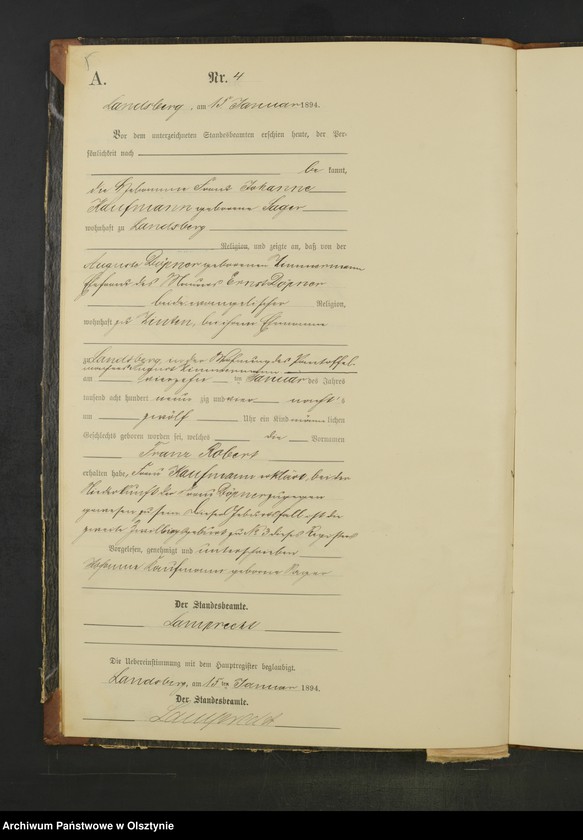 A.
Nr. 4
Landsberg, am 15 Januar 1894.
Vor dem unterzeichneten Standesbeamten erschien heute, der Per-
sönlichkeit nach
be kannt,
die Hebamme Frau Johanne
Kaufmann geborene Sager
wohnhaft zu Landsberg
Religion, und zeigte an, daß von der
Auguste Döpner geborenen Zimmermann
Ehefrau des Maurers Ernst Döpner
beide evangelischer Religion,
wohnhaft zu Zinten, bei ihrem Ehemanne
zu Landsberg in der Wohnung des Pantoffel-
machers August Zimmermann
am vierzehn ten Januar des Jahres
tausend acht hundert neun zig und vier nachts
um zwölf Uhr ein Kind männlichen
Geschlechts geboren worden sei, welches die Vornamen
Franz Robert
erhalten habe. Frau Kaufmann erklärt, bei der
Niederkunft der Frau Döpner zugegen
gewesen zu sein. Dieser Geburtsfall ist die
zweite Zwillingsgeburt zu Nr. 3 dieses Registers
Vorgelesen, genehmigt und unterschrieben
Kaufmann geborne Sager
Der Standesbeamte.
Lamprecht
Die Uebereinstimmung mit dem Hauptregister beglaubigt.
Landsberg, am 15 ten Januar 1894.
Der Standesbeamte.
Lamprecht
Archiwum Państwowe w Olsztynie